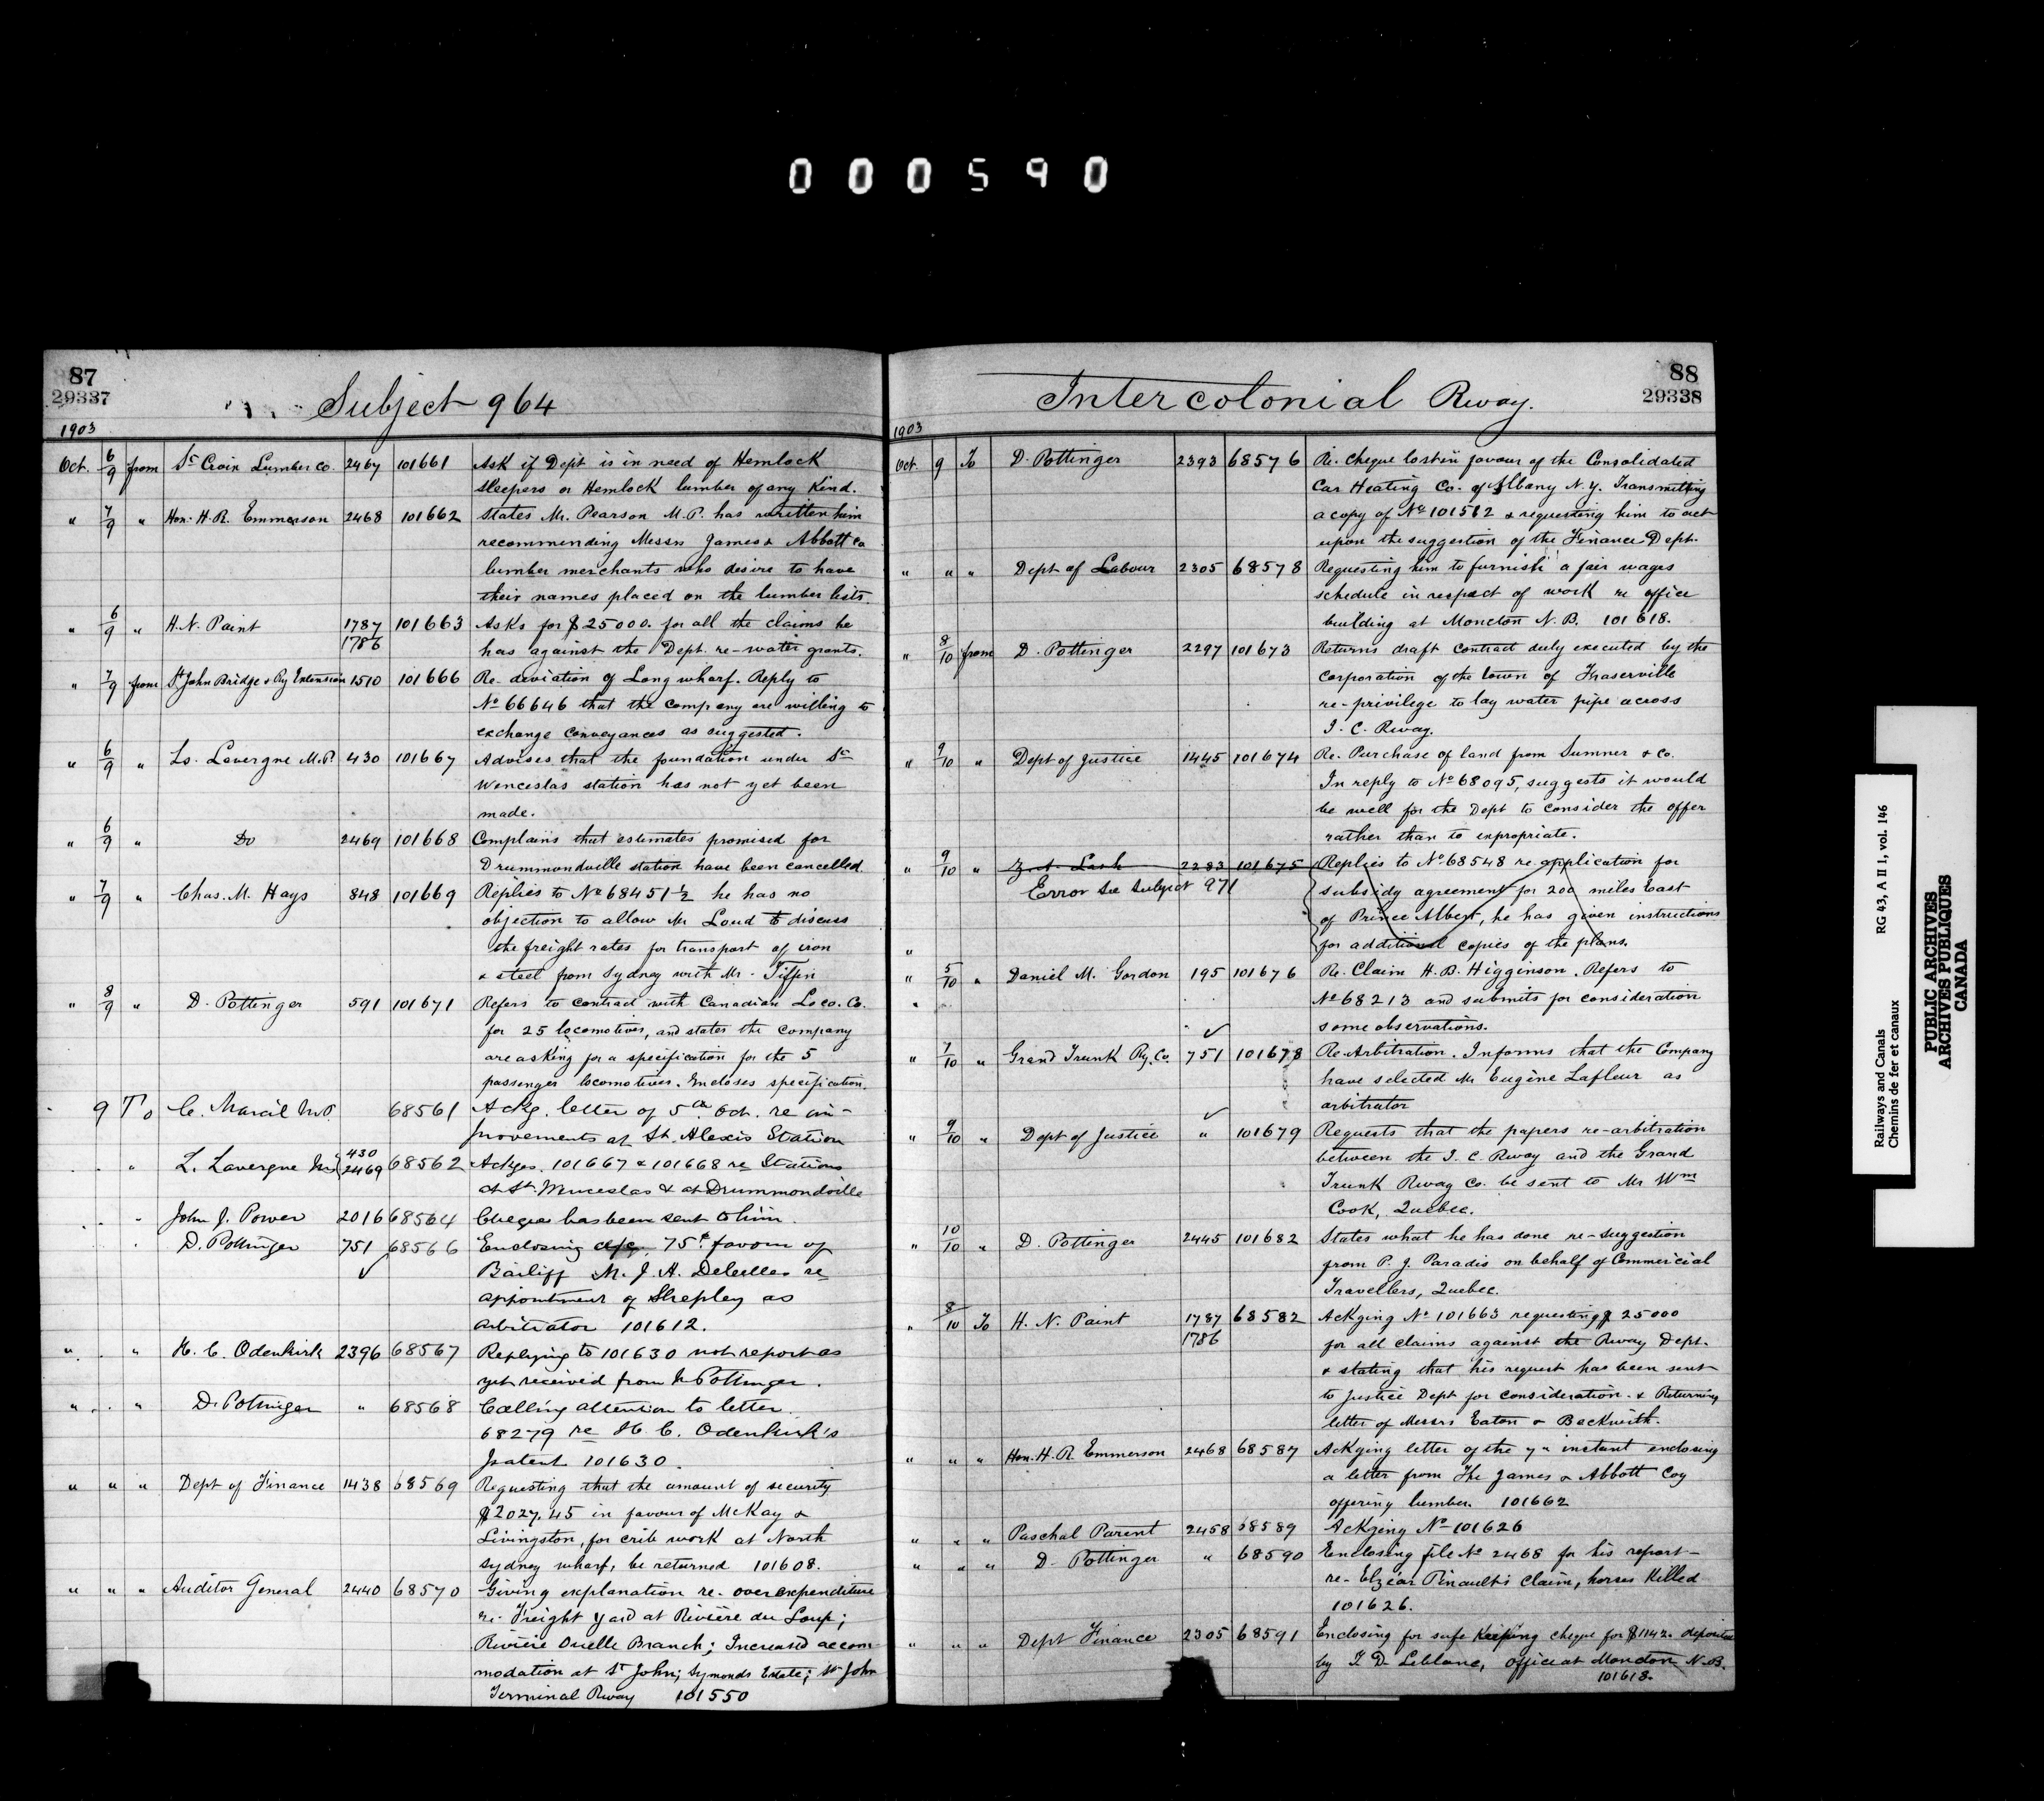 000590
87
29337
Subject 964
1903
Oct. 6/9 from St Croix Lumber Co. 2467 101661 Ask if Dept is in need of Hemlock
sleepers or Hemlock lumber of any kind.
" 7/9 " Hon. H. R. Emmerson 2468 101662 States Mr. Pearson M.P. has written him
recommending Messrs James & Abbott Co
lumber merchants who desire to have
their names placed on the lumber lists.
" 6/9 " H. N. Paint 1787 101663 Asks for $25000. for all the claims he
1786 has against the Dept. re-water grants.
" 7/9 from St John Bridge & Ry Extension 1510 101666 Re- deviation of Long wharf. Reply to
No 66646 that the company are willing to
exchange conveyances as suggested.
" 6/9 " Ls. Lavergne M.P. 430 101667 Advises that the foundation under St
Wenceslas station has not yet been
made.
" 6/9 " Do 2469 101668 Complains that estimates promised for
Drummondville station have been cancelled.
" 7/9 " Chas. M. Hays 848 101669 Replies to No 68451 1/2 he has no
objection to allow Mr Loud to discuss
the freight rates for transport of iron
& steel from Sydney with Mr. Tiffin
" 8/9 " D. Pottinger 591 101671 Refers to contract with Canadian Loco. Co.
for 25 locomotives, and states the company
are asking for a specification for the 5
passenger locomotives. Encloses specification.
9 To C. Marcil M.P. 68561 Ackg. letter of 5th Oct. re im-
provements at St. Alexis Station
" L. Lavergne M.P. 430 2469 68562 Ackges. 101667 & 101668 re Stations
at St. Wenceslas & at Drummondville
" John J. Power 2016 68564 Cheque has been sent to him.
" D. Pottinger 751 68566 Enclosing 75$ favour of
✓ Bailiff M. J. A. re
appointment of Shepley as
arbitrator 101612.
" " H. C. Odenkirk 2396 68567 Replying to 101630 not report as
yet received from Mr Pottinger.
" " D. Pottinger " 68568 Calling attention to letter
68279 re H. C. Odenkirk's
patent 101630.
" " " Dept of Finance 1438 68569 Requesting that the amount of security
$2027.45 in favour of McKay &
Livingston, for crib work at North
Sydney wharf, be returned 101608.
" " " Auditor General 2440 68570 Giving explanation re- over expenditure
re- Freight yard at Rivière du Loup;
Rivière Ouelle Branch; Increased accom
modation at St John; Symonds Estate; St John
Terminal Rway 101550
88
29338
Intercolonial Rway.
1903
Oct. 9 To D. Pottinger 2393 68576 Re. Cheque lost in favour of the Consolidated
Car Heating Co. of Albany N.Y. Transmitting
a copy of No 101562 & requesting him to act
upon the suggestion of the Finance Dept.
" " " Dept of Labour 2305 68578 Requesting him to furnish a fair wages
schedule in respect of work re office
building at Moncton N.B. 101618.
" 8/10 from D. Pottinger 2297 101673 Returns draft contract duly executed by the
corporation of the town of Fraserville
re-privilege to lay water pipe across
I. C. Rway.
" 9/10 " Dept of Justice 1445 101674 Re- Purchase of land from Sumner & Co.
In reply to No 68095, suggests it would
be well for the Dept to consider the offer
rather than to expropriate.
" 9/10 " Z. A. Lash 2283 101675 Replies to No 68548 re application for
Error See Subject 971 subsidy agreement for 200 miles East
of Prince Albert, he has given instructions
" for additional copies of the plans.
" 5/10 " Daniel M. Gordon 195 101676 Re. Claim H. B. Higginson. Refers to
" No 68213 and submits for consideration
some observations.
✓
" 7/10 " Grand Trunk Ry. Co. 751 101678 Re-Arbitration. Informs that the Company
have selected Mr Eugène Lafleur as
arbitrator
✓
" 9/10 " Dept of Justice " 101679 Requests that the papers re-arbitration
between the I. C. Rway and the Grand
Trunk Rway Co. be sent to Mr Wm
Cook, Quebec.
" 10/10 " D. Pottinger 2445 101682 States what he has done re-suggestion
from P. J. Paradis on behalf of Commericial
Travellers, Quebec.
" 8/10 To H. N. Paint 1787 68582 Ackging No 101663 requesting $25000
1786 for all claims against the Rway Dept.
& stating that his request has been sent
to Justice Dept for consideration. & Returning
letter of Messrs Eaton & Beckwith.
" " " Hon. H. R. Emmerson 2468 68587 Ackging letter of the 7th instant enclosing
a letter from The James & Abbott Coy
offering lumber. 101662
" " " Paschal Parent 2458 68589 Ackging No 101626
" " " D. Pottinger " 68590 Enclosing file No 2468 for his report-
re- Elzéar Pinault's claim, horses killed
101626.
" " " Dept Finance 2305 68591 Enclosing for safe keeping cheque for $1142. deposited
by I. D. Leblanc, office at Moncton N.B.
101618.
Railways and Canals RG 43, A II 1, vol. 146
Chemins de fer et canaux
PUBLIC ARCHIVES
ARCHIVES PUBLIQUES
CANADA